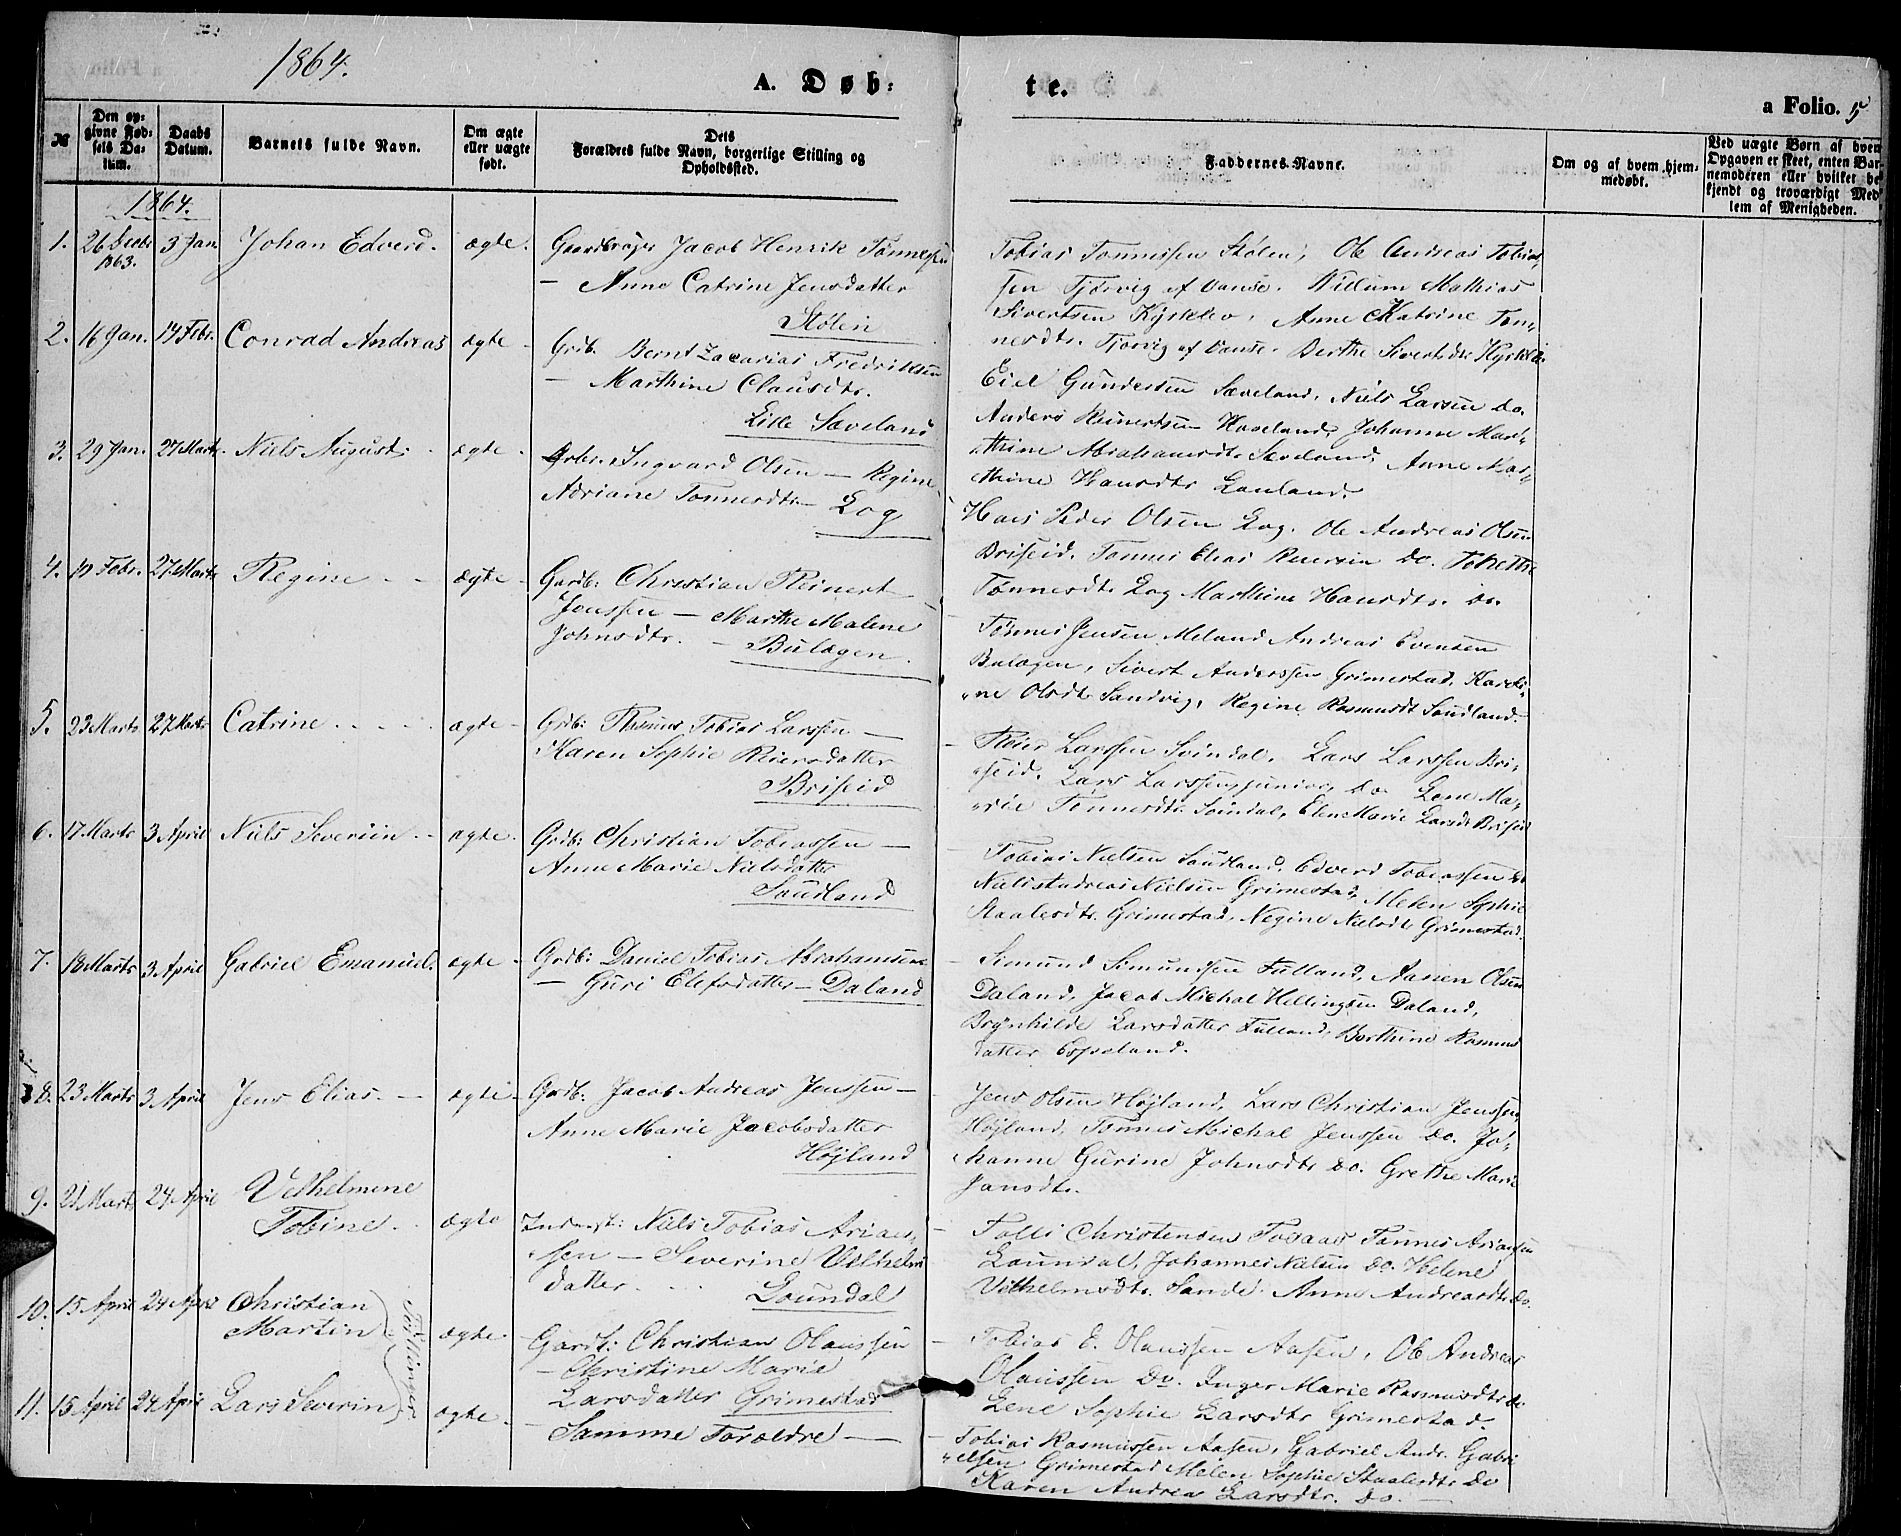 1864.
A. Døb:
te.
a Folio. 5
№
Den op-
givne Fød-
sels Da-
tum.
Daabs
Datum.
Barnets fulde Navn.
Om ægte
eller uægte
født.
Dets
Forældres fulde Navn, borgerlige Stilling og
Opholdssted.
Faddernes Navne.
Om og af hvem hjem-
medøbt.
Ved uægte Børn af hvem
Opgaven er skeet, enten Bar-
nemoderen eller hvilket be-
kjendt og troværdigt Med-
lem af Menigheden.
1864.
1. 26 Decbr 1863. 3 Jan. Johan Edverd. ægte. Gaardbruger Jacob Henrik Tønnessen
— Anne Catrine Jensdatter
Stølen
Tobias Tønnessen Stølen, Ole Andreas Tobias-
sen Tjørvig af Vanse. Willum Mathias
Sivertsen Kjørklev, Anne Katrine Tøn-
nesdtr. Tjørvig af Vanse. Berthe Sivertsdtr
2. 16 Jan. 14 Febr. Conrad Andreas ægte Grdb. Bernt Zacarias Fredriksen
— Marthine Clausdtr.
Lille Sæveland
Eiel Gundersen Sæveland, Niels Larsen do.
Anders Reinertsen Haseland, Johanne Mar-
thine Abrahamsdtr Sæveland, Anne Mar-
thine Hansdtr Launland.
3. 29 Jan. 27 Marts. Niels August. ægte Grbr. Ingvard Olsen — Regine
Adriane Tønnesdtr — Log
Hans Peder Olsen Log. Ole Andreas Olsen
Briseid. Tønnes Elias Reiersen do.
Tønnesdtr. Log Marthine Hansdtr. do.
4. 10 Febr. 27 Marts Regine ægte Gardb: Christian Reinert
Jenssen — Marthe Malene
Johnsdtr. — Bulægen.
Tønnes Jensen Meland Andreas Evensen
Bulægen, Sivert Anderssen Grimestad, Karoli-
ne Olsdtr Sandvig, Regine Rasmusdt Saudland.
5. 23 Marts 27 Marts Catrine ægte Grdb: Thomas Tobias Larssen —
Karen Sophie Reiersdatter
Briseid
Reier Larssen Svindal. Lars Larssen Bri-
seid. Lars Larssen junior, do Lene Ma-
rie Tønnesdtr. Svindal, Elen Marie Larsdt Briseid
6. 17 Marts 3 April Niels Severiin ægte. Grdb: Christian Tobiassen —
Anne Marie Nielsdatter
Saudland
Tobias Nielsen Saudland, Edverd Tobiassen do
Niels Andreas Nielsen Grimestad, Melen Sophie
Staalesdtr. Grimestad, Regine Nielsdt Grimestad.
7. 18 Marts 3 April Gabriel Emanuel. ægte Grdb: Daniel Tobias Abrahamsen
— Guri Elefsdatter — Daland
Simund Simundsen Fulland, Aanen Olsen
Daland, Jacob Michal Hellingsen Daland,
Brynhilde Larsdatter Fulland, Berthine Rasmus
datter Espeland.
8. 23 Marts 3 April Jens Elias. ægte Grdb: Jacob Andreas Jenssen —
Anne Marie Jacobsdatter
Højland
Jens Olsen Højland, Lars Christian Jenssen
Højland, Tønnes Michal Jenssen do. Jo-
hanne Gurine Johnsdtr do. Grethe Marie
Jansdtr.
9. 21 Marts 24 April Velhelmine
Tobine. ægte Inderst: Niels Tobias Arians-
sen — Severine Vilhelm
datter Loundal
Salli Christensen Tosaas Tønnes Ariansen
Loundal, Johannes Nielsen do. Helene
Vilhelmsdtr. Sande. Anne Andreasdtr do.
10. 15 April 24 April Christian
Martin ægte. Gardb: Christian Olaussen
— Christine Marie
Larsdatter Grimestad
Tvillinger
Tobias E. Olaussen Aasen, Ole Andreas
Olaussen Do. Inger Marie Rasmusdtr do
Lene Sophie Larsdtr Grimestad
11. 15 April 24 April Lars Severin ægte. — Samme Forældre —
Tobias Rasmussen Aasen, Gabriel Andr. Gabri
elsen Grimestad Melen Sophie Staalesdtr Do
Karen Andrea Larsdtr. do. —